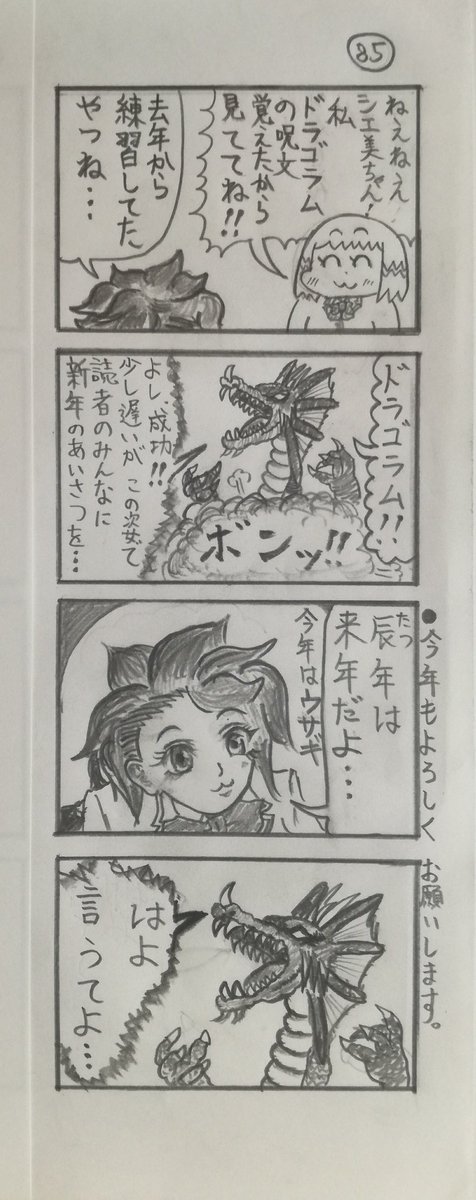 85
ねえねえ
シエ美ちゃん!
私
ドラゴラム
の呪文
覚えたから
見ててね!!
去年から
練習してた
やつね…
ドラゴラム!!
ボンッ!!
よし、成功!!
少し遅いが この姿で
読者のみんなに
新年のあいさつを…
●今年もよろしく お願いします。
辰年は
たつ
来年だよ…
今年はウサギ
はよ
言うてよ…